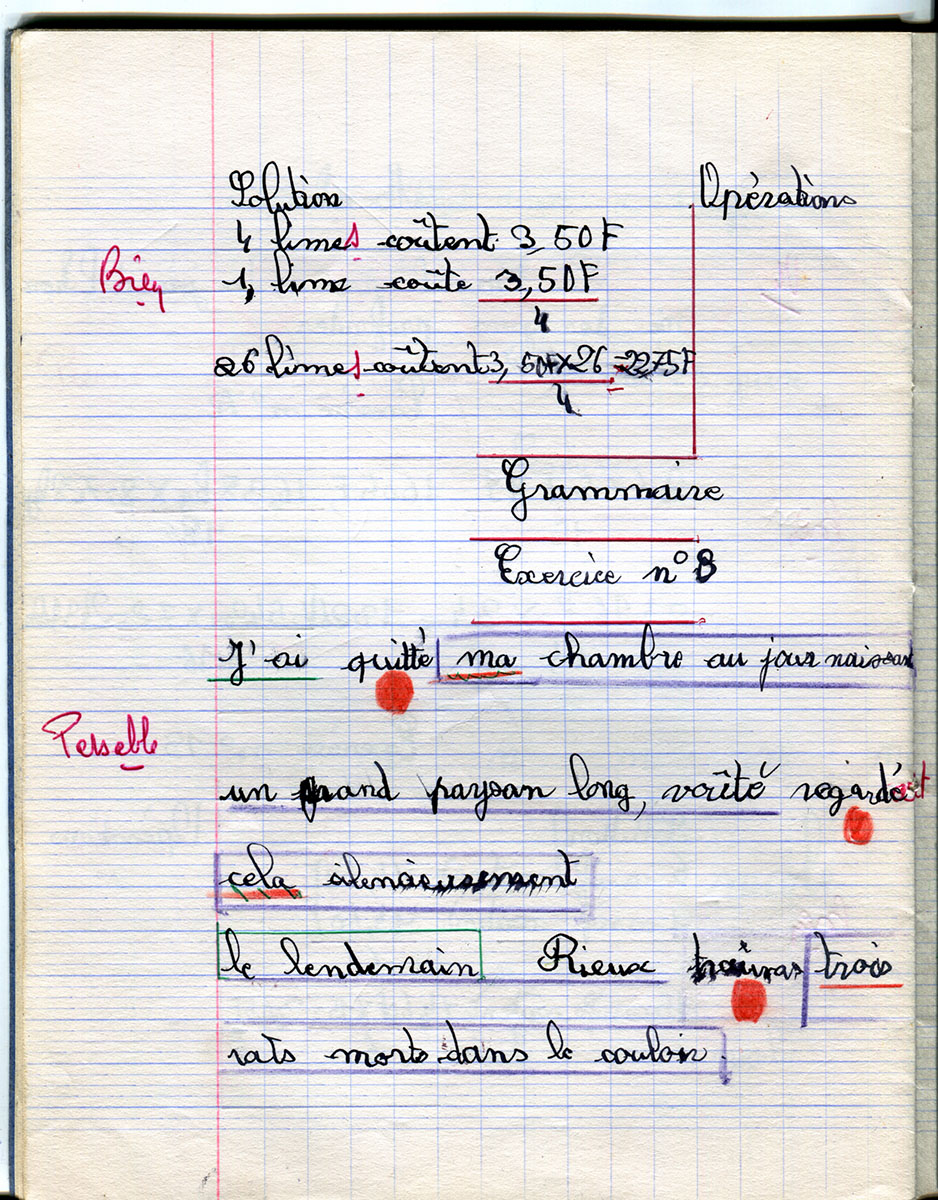 Solution Opérations
4 limes coûtent 3,50F
Bien 1 lime coûte 3,50F
4
26 limes coûtent 3,50F×26 =22,75F
4
Grammaire
Exercice n° 8
J'ai quitté ma chambre au jour naissant
Passable
un grand paysan long, voûté regardait
cela silencieusement
le lendemain Rieux trouvas trois
rats morts dans le couloir.